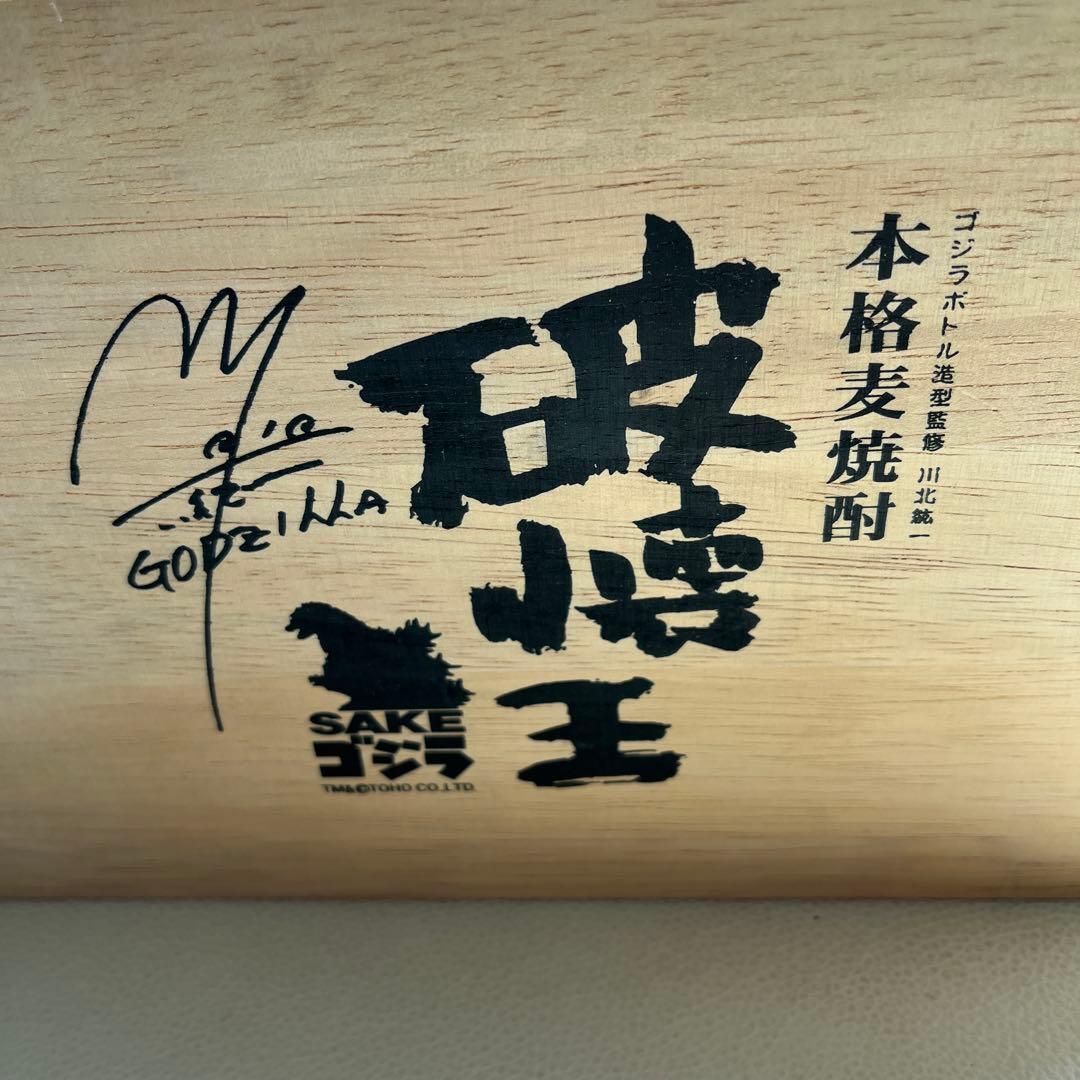 ゴジラボトル造型監修 川北紘一
本格麦焼酎
破壊王
GODZILLA
SAKE
ゴジラ
TM&©TOHO CO.,LTD.